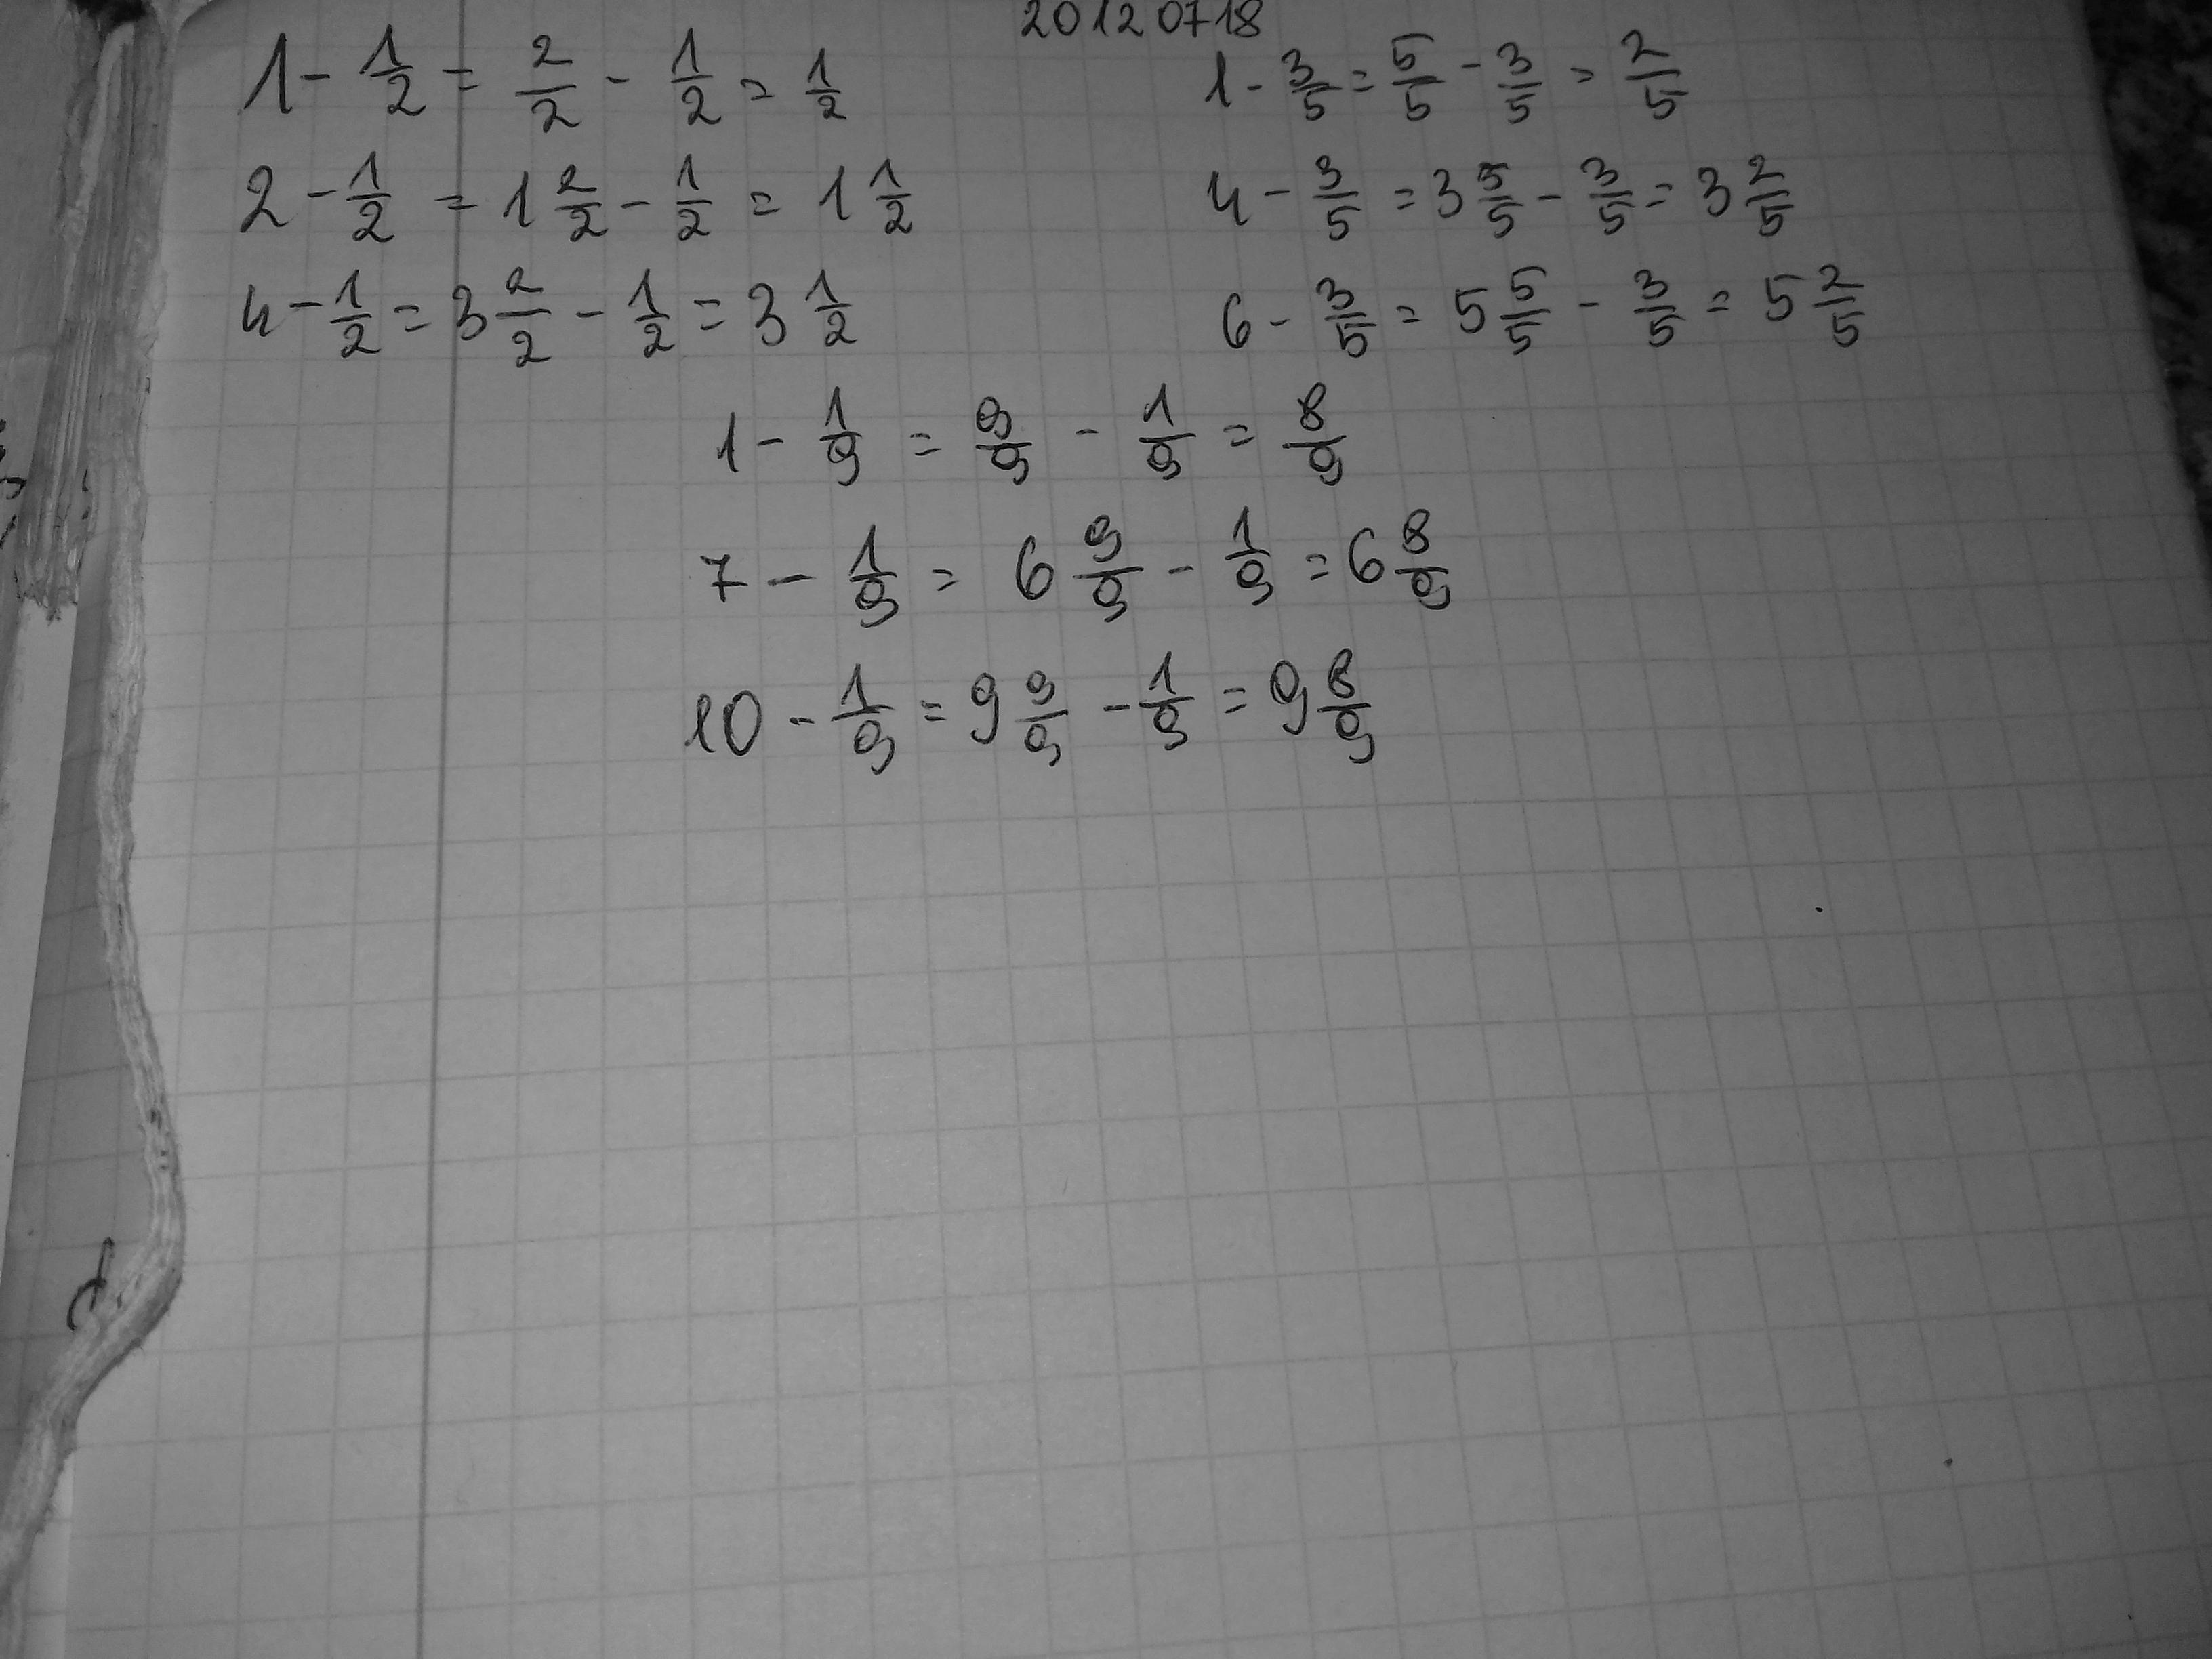 20120718
1 - 1/2 = 2/2 - 1/2 = 1/2
2 - 1/2 = 1 2/2 - 1/2 = 1 1/2
4 - 1/2 = 3 2/2 - 1/2 = 3 1/2
1 - 3/5 = 5/5 - 3/5 = 2/5
4 - 3/5 = 3 5/5 - 3/5 = 3 2/5
6 - 3/5 = 5 5/5 - 3/5 = 5 2/5
1 - 1/9 = 9/9 - 1/9 = 8/9
7 - 1/9 = 6 9/9 - 1/9 = 6 8/9
10 - 1/9 = 9 9/9 - 1/9 = 9 8/9